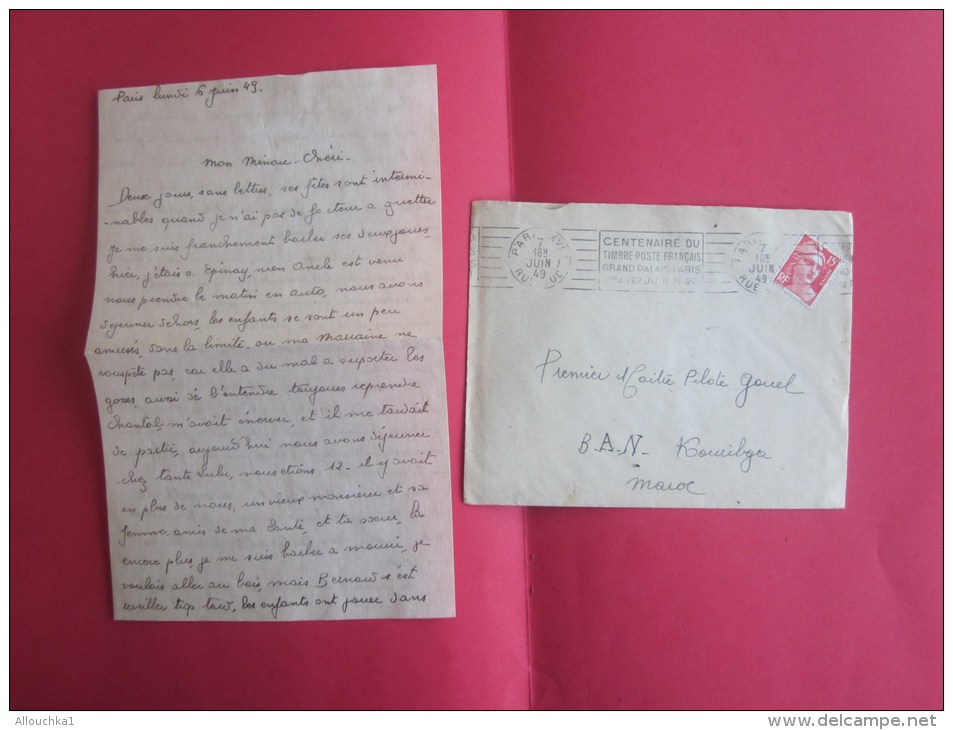 Paris lundi 6 juin 49.
Mon Minou-Chéri-
Deux jours sans lettres, ses fêtes sont intermi-
nables quand je n'ai pas de facteur a guetter
Je me suis franchement barber ses deux jours,
hier, j'étais a Epinay, mon Oncle est venu
nous prendre le matin en auto, nous avons
dejeuner dehors, les enfants se sont un peu
amusés, dans la limite ou ma Marraine ne
rouspéte pas, car elle a du mal a suporter les
gosses, aussi de l'entendre toujours reprendre
Chantal m'avait énerver, et il me tardait
de partir, aujourd'hui nous avons déjeuner
chez tante Lulu, nous étions 12 - il y avait
en plus de nous, un vieux monsieur et sa
femme amis de ma Tante, et ta soeur, là
encore plus je me suis barber a mourir, je
voulais aller au bois, mais Bernard s'est
reveiller trop tard, les enfants ont jouer dans
PARIS XVII
7
18H
JUIN
49
RU
CENTENAIRE DU
TIMBRE-POSTE FRANÇAIS
GRAND PALAIS PARIS
7
18H
JUIN
49
RUE
15F
RF
Premier Maitre Pilote Gouel
B-A-N- Kouribga
Maroc
Allouchka1
www.delcampe.net